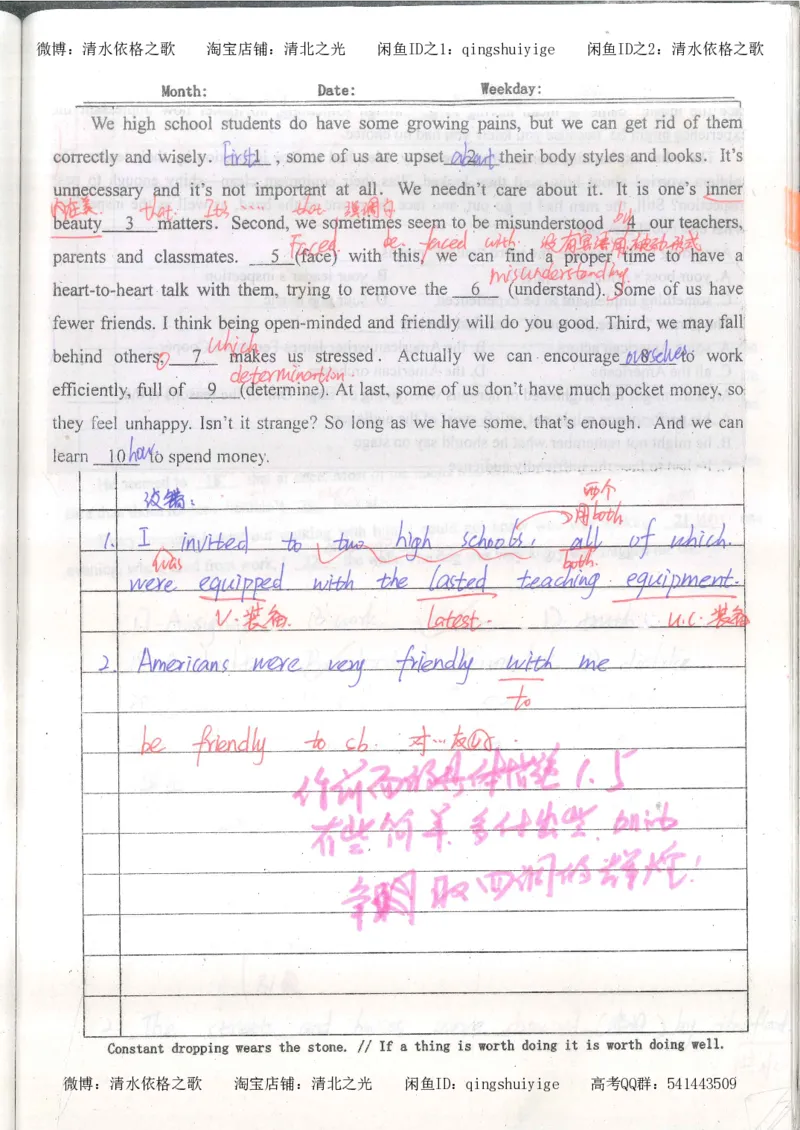 微博：清水依格之歌 淘宝店铺：清北之光 闲鱼ID之1：qingshuiyige 闲鱼ID之2：清水依格之歌
Month: Date: Weekday:
We high school students do have some growing pains, but we can get rid of them
correctly and wisely. First 1 , some of us are upset about 2 their body styles and looks. It's
unnecessary and it's not important at all. We needn't care about it. It is one's inner
内在美 that It is … that 强调句 by
beauty 3 matters. Second, we sometimes seem to be misunderstood 4 our teachers,
Faced be faced with 没有宾语用被动形式
parents and classmates. 5 (face) with this, we can find a proper time to have a
misunderstanding
heart-to-heart talk with them, trying to remove the 6 (understand). Some of us have
fewer friends. I think being open-minded and friendly will do you good. Third, we may fall
which
behind others, 7 makes us stressed. Actually we can encourage 8 to work
determination.
efficiently, full of 9 (determine). At last, some of us don't have much pocket money, so
they feel unhappy. Isn't it strange? So long as we have some, that's enough. And we can
learn 10 how to spend money.
改错：
两个
用both
1. I invited to two high schools, all of which.
was both.
were equipped with the lasted teaching equipment.
v.装备. latest. u.c.装备
2. Americans were very friendly with me
to
be friendly to sb. 对…友好.
1.5
有些简单
争取
Constant dropping wears the stone. // If a thing is worth doing it is worth doing well.
微博：清水依格之歌 淘宝店铺：清北之光 闲鱼ID：qingshuiyige 高考QQ群：541443509